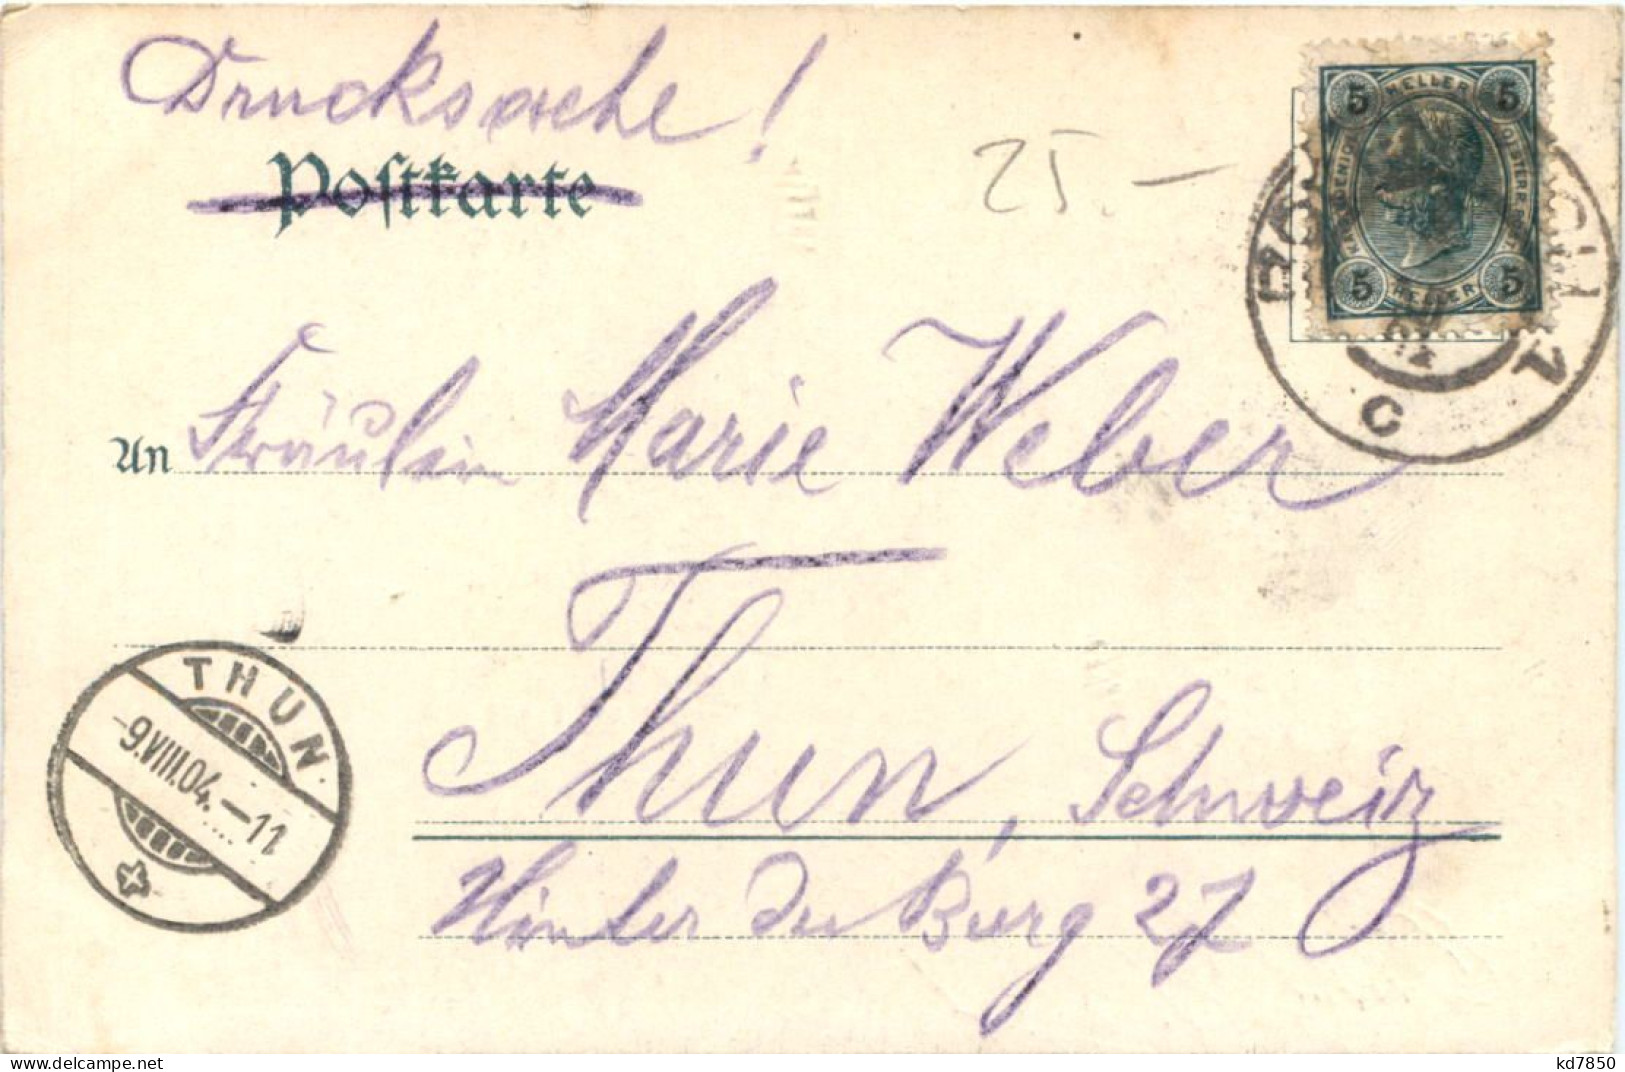 Drucksache!
Postkarte
25.—
5 HELLER 5
5 HELLER 5
C
1
An Fräulein Marie Weber
Thun, Schweiz
Hinter der Burg 27
THUN.
-9.VIII.04.-11
delcampe.net
kd7850